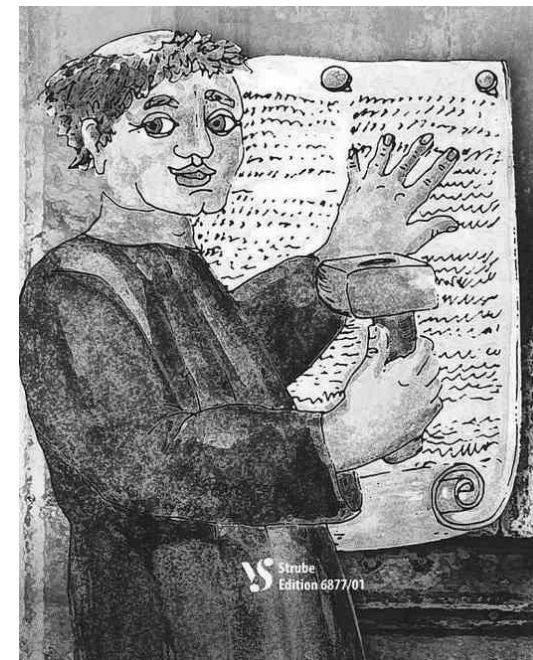 Strube
Edition 6877/01